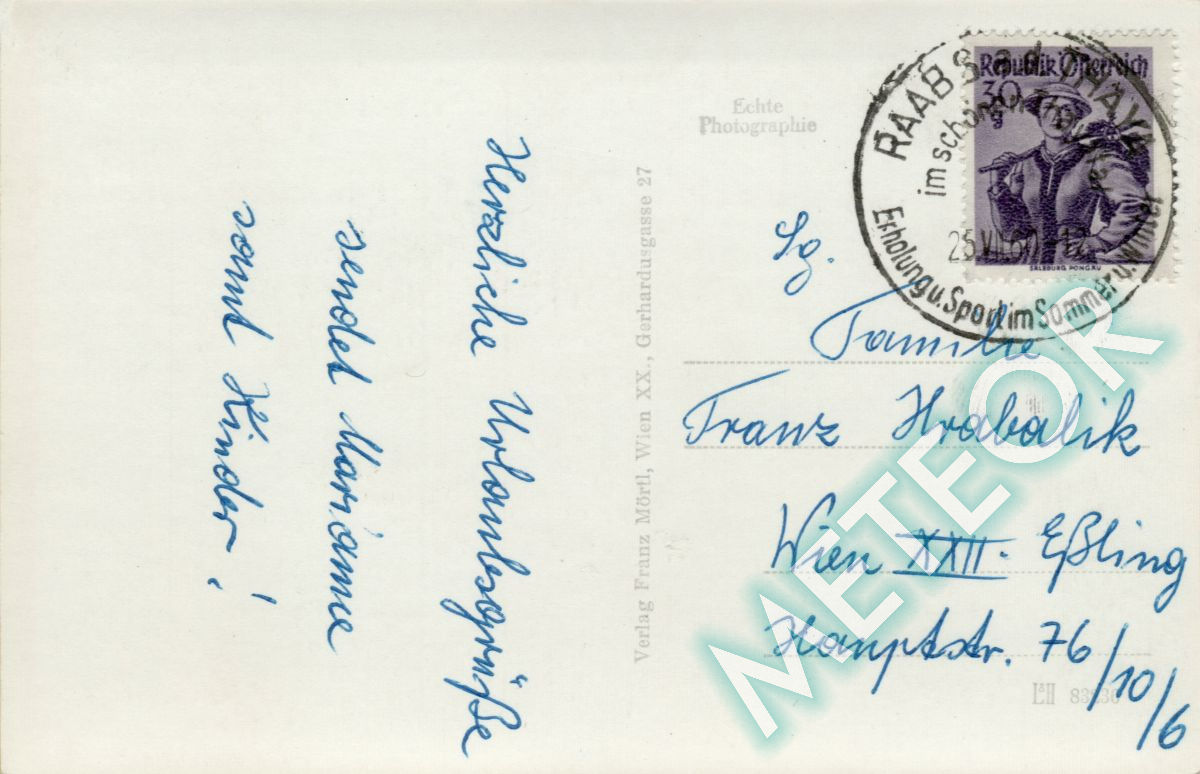 Herzliche Urlaubsgrüße
sendet Marianne
samt Kinder!
Verlag Franz Mörtl, Wien XX., Gerhardusgasse 27
Echte
Photographie
Republik Österreich
30 g
SALZBURG, PONGAU
RAABS a.d. THAYA
im schönen Thayatal
25.VII.60
Erholung u. Sport im Sommer u. Winter
Familie
Franz Hrabalik
Wien XXII. Eßling
Hauptstr. 76/10/6
METEOR